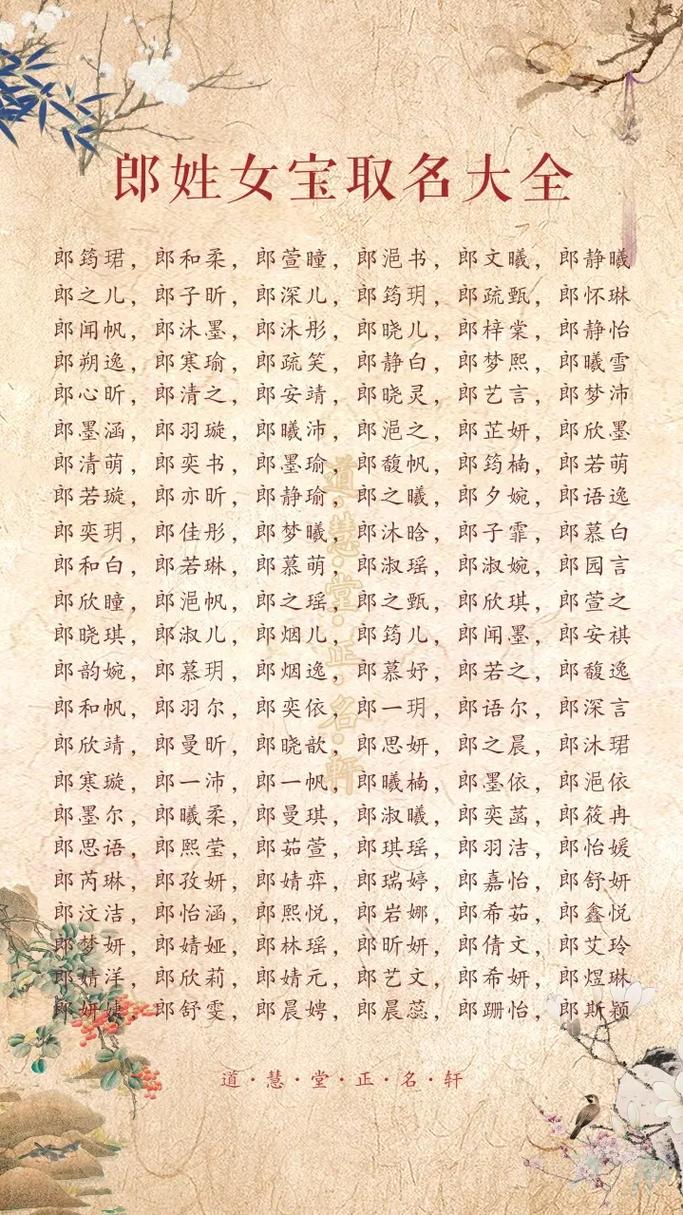 郎姓女宝取名大全
郎筠珺，郎和柔，郎萱瞳，郎浥书，郎文曦，郎静曦
郎之儿，郎子昕，郎深儿，郎筠玥，郎疏甄，郎怀琳
郎闻帆，郎沐墨，郎沐彤，郎晓儿，郎梓棠，郎静怡
郎朔逸，郎寒瑜，郎疏笑，郎静白，郎梦熙，郎曦雪
郎心昕，郎清之，郎安靖，郎晓灵，郎艺言，郎梦沛
郎墨涵，郎羽璇，郎曦沛，郎浥之，郎芷妍，郎欣墨
郎清萌，郎奕书，郎墨瑜，郎馥帆，郎筠楠，郎若萌
郎若璇，郎亦昕，郎静瑜，郎之曦，郎夕婉，郎语逸
郎奕玥，郎佳彤，郎梦曦，郎沐晗，郎子霏，郎慕白
郎和白，郎若琳，郎慕萌，郎淑瑶，郎淑婉，郎园言
郎欣瞳，郎浥帆，郎之瑶，郎之甄，郎欣琪，郎萱之
郎晓琪，郎淑儿，郎烟儿，郎筠儿，郎闻墨，郎安祺
郎韵婉，郎慕玥，郎烟逸，郎慕妤，郎若之，郎馥逸
郎和帆，郎羽尔，郎奕依，郎一玥，郎语尔，郎深言
郎欣靖，郎曼昕，郎晓歆，郎思妍，郎之晨，郎沐珺
郎寒璇，郎一沛，郎一帆，郎曦楠，郎墨依，郎浥依
郎墨尔，郎曦柔，郎曼琪，郎淑曦，郎奕菡，郎筱冉
郎思语，郎熙莹，郎茹萱，郎琪瑶，郎羽洁，郎怡媛
郎芮琳，郎孜妍，郎婧弈，郎瑞婷，郎嘉怡，郎舒妍
郎汶洁，郎怡涵，郎熙悦，郎岩娜，郎希茹，郎鑫悦
郎梦妍，郎婧娅，郎林瑶，郎昕妍，郎倩文，郎艾玲
郎婧洋，郎欣莉，郎婧元，郎艺文，郎希妍，郎煜琳
郎妍婕，郎舒雯，郎晨娉，郎晨蕊，郎珊怡，郎斯颖
道·慧·堂·正·名·轩
道·慧·堂·正·名·轩